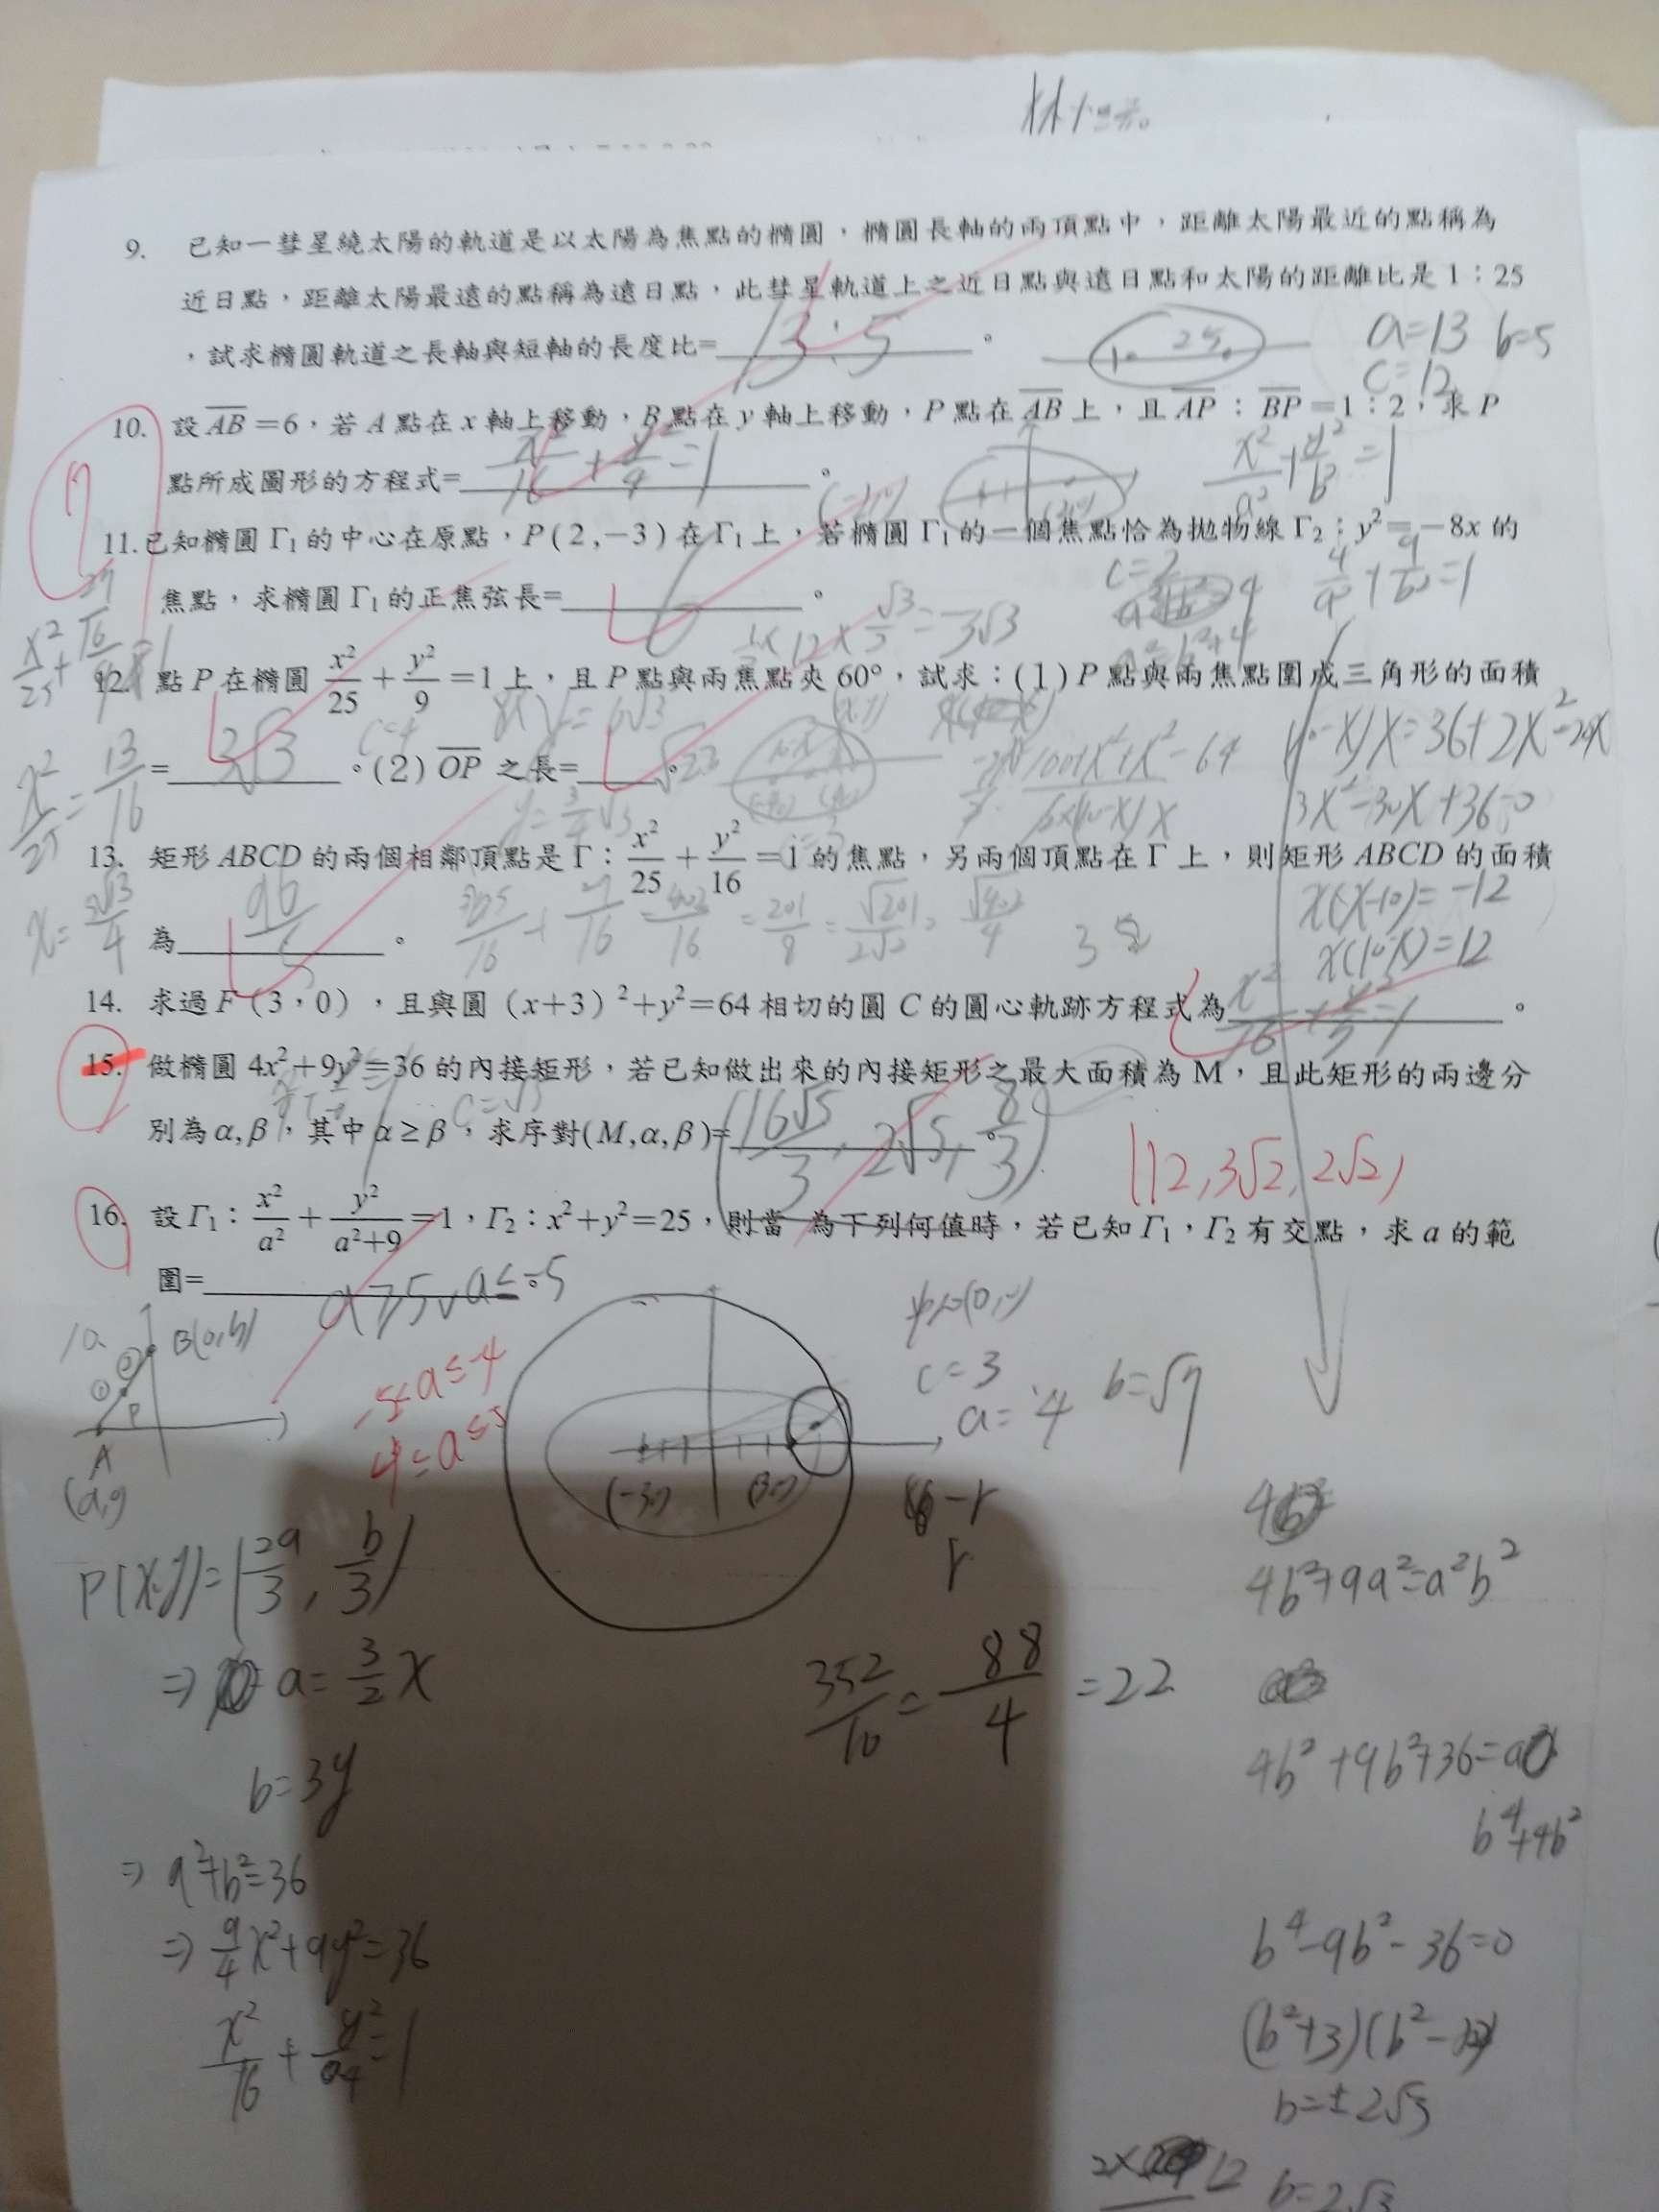 9. 已知一彗星繞太陽的軌道是以太陽為焦點的橢圓，橢圓長軸的兩頂點中，距離太陽最近的點稱為
近日點，距離太陽最遠的點稱為遠日點，此彗星軌道上之近日點與遠日點和太陽的距離比是 1：25
，試求橢圓軌道之長軸與短軸的長度比= 13：5 。
a=13 b=5
c=12
10. 設 AB =6，若 A 點在 x 軸上移動，B 點在 y 軸上移動，P 點在 AB 上，且 AP ： BP =1：2，求 P
點所成圖形的方程式= x²/16 + y²/4 =1 。
x²/a² + y²/b² =1
11.已知橢圓 Γ₁ 的中心在原點，P(2,−3) 在 Γ₁ 上，若橢圓 Γ₁ 的一個焦點恰為拋物線 Γ₂：y²=−8x 的
焦點，求橢圓 Γ₁ 的正焦弦長= 6 。
c=2
4/a² + 9/b² =1
12. 點 P 在橢圓 x²/25 + y²/9 =1 上，且 P 點與兩焦點夾 60°，試求：(1) P 點與兩焦點圍成三角形的面積
= 3√3 。(2) OP 之長= 。
c=4
3x²−30x+36=0
13. 矩形 ABCD 的兩個相鄰頂點是 Γ： x²/25 + y²/16 =1 的焦點，另兩個頂點在 Γ 上，則矩形 ABCD 的面積
為 96/5 。
x(x-10)=−12
x(10-x)=12
14. 求過 F（3，0），且與圓（x+3）²+y²=64 相切的圓 C 的圓心軌跡方程式為 x²/16 + y²/7 =1 。
15. 做橢圓 4x²+9y²=36 的內接矩形，若已知做出來的內接矩形之最大面積為 M，且此矩形的兩邊分
別為 α, β，其中 α ≥ β，求序對(M, α, β)= (16√5/3, 2√5, 8/3)
c=√5
(12, 3√2, 2√2)
16. 設 Γ₁： x²/a² + y²/(a²+9) =1，Γ₂：x²+y²=25，則當 為下列何值時，若已知 Γ₁，Γ₂ 有交點，求 a 的範
圍= a≥5, a≤-5
-5≤a≤-4
4≤a≤5
B(0,b)
P
A
(a,0)
(-3,0) (3,0)
c=3
a=4 b=√7
8-r
r
P(x,y)=(2a/3, b/3)
⇒ a=3/2 x
b=3y
⇒ a²+b²=36
⇒ 9/4 x²+9y²=36
x²/16 + y²/4 =1
352/16 = 88/4 =22
4b²+9a²=a²b²
4b²+9b²+36=
b⁴+4b²
b⁴-9b²-36=0
(b²+3)(b²-12)
b=±2√3
b=2√3